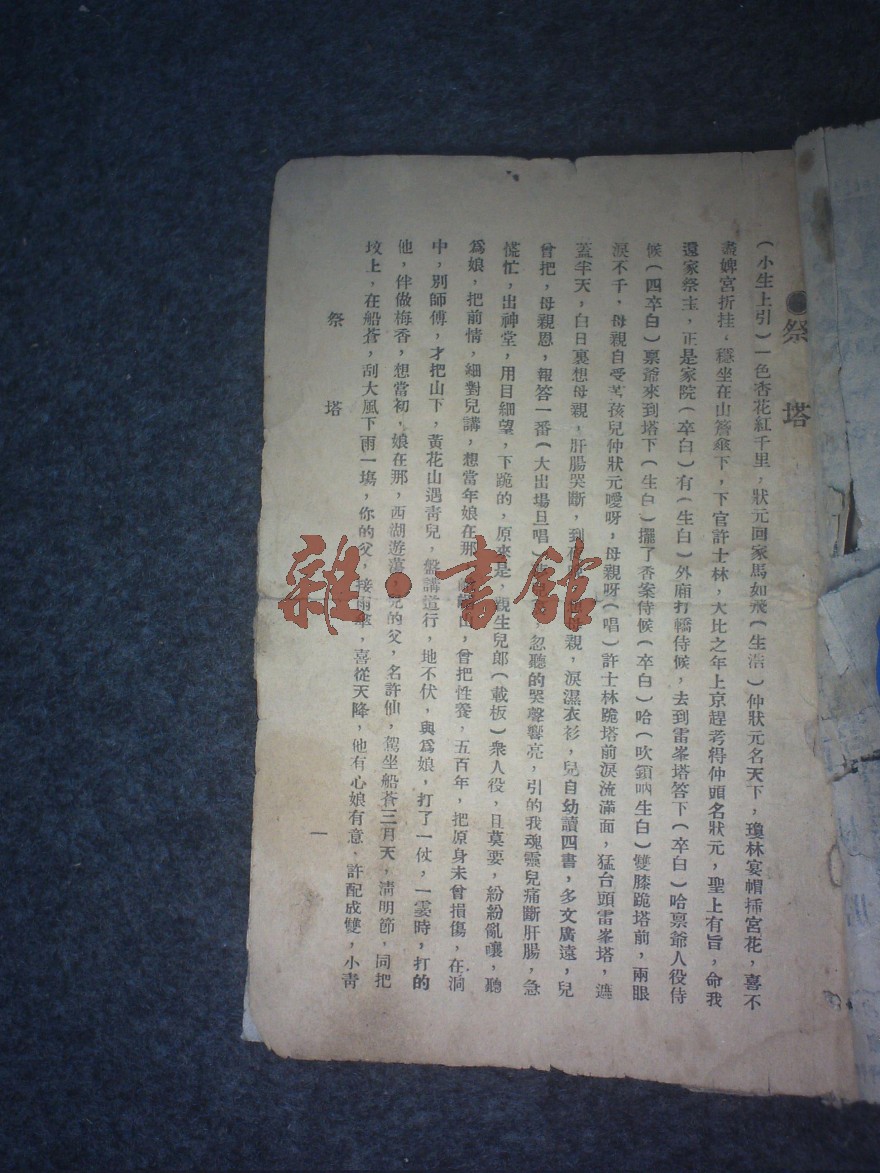 祭塔
(小生上引)一色杏花紅千里，狀元回家馬如飛(生活)仲狀元名天下，瓊林宴帽揷宮花，喜不
盡婢宮折挂，穩坐在山簷傘下，下官許士林，大比之年上京趕考得仲頭名狀元，聖上有旨，命我
還家祭主，正是家院(卒白)有(生白)外廂打轎侍候，去到雷峯塔答下(卒白)哈禀爺人役侍
候(四卒白)禀爺來到塔下(生白)擺了香案侍候(卒白)哈(吹鎖吶生白)雙膝跪塔前，兩眼
淚不千，母親自受苦孩兒仲狀元噯呀，母親呀(唱)許士林跪塔前淚流滿面，猛台頭雷峯塔，遮
蓋半天，白日裏想母親，肝腸哭斷，到母親，淚濕衣衫，兒自幼讀四書，多文廣遠，兒
曾把，母親恩，報答一番(大出場旦唱)忽聽的哭聲響亮，引的我魂靈兒痛斷肝腸，急
慌忙，出神堂，用目細望，下跪的，原來是，親生兒郎(載板)衆人役，且莫要，紛紛亂嚷，聽
爲娘，把前情，細對兒講，想當年娘在那山，曾把性養，五百年，把原身未曾損傷，在洞
中，別師傅，才把山下，黃花山遇靑兒，盤講道行，地不伏，與爲娘，打了一仗，一霎時，打的
他，伴做梅香，想當初，娘在那，西湖遊蕩，兒的父，名許仙，駕坐船蒼三月天，淸明節，同把
坟上，在船蒼，刮大風下雨一塲，你的父，接雨傘，喜從天降，他有心娘有意，許配成雙，小靑
祭塔
一
雜·書館